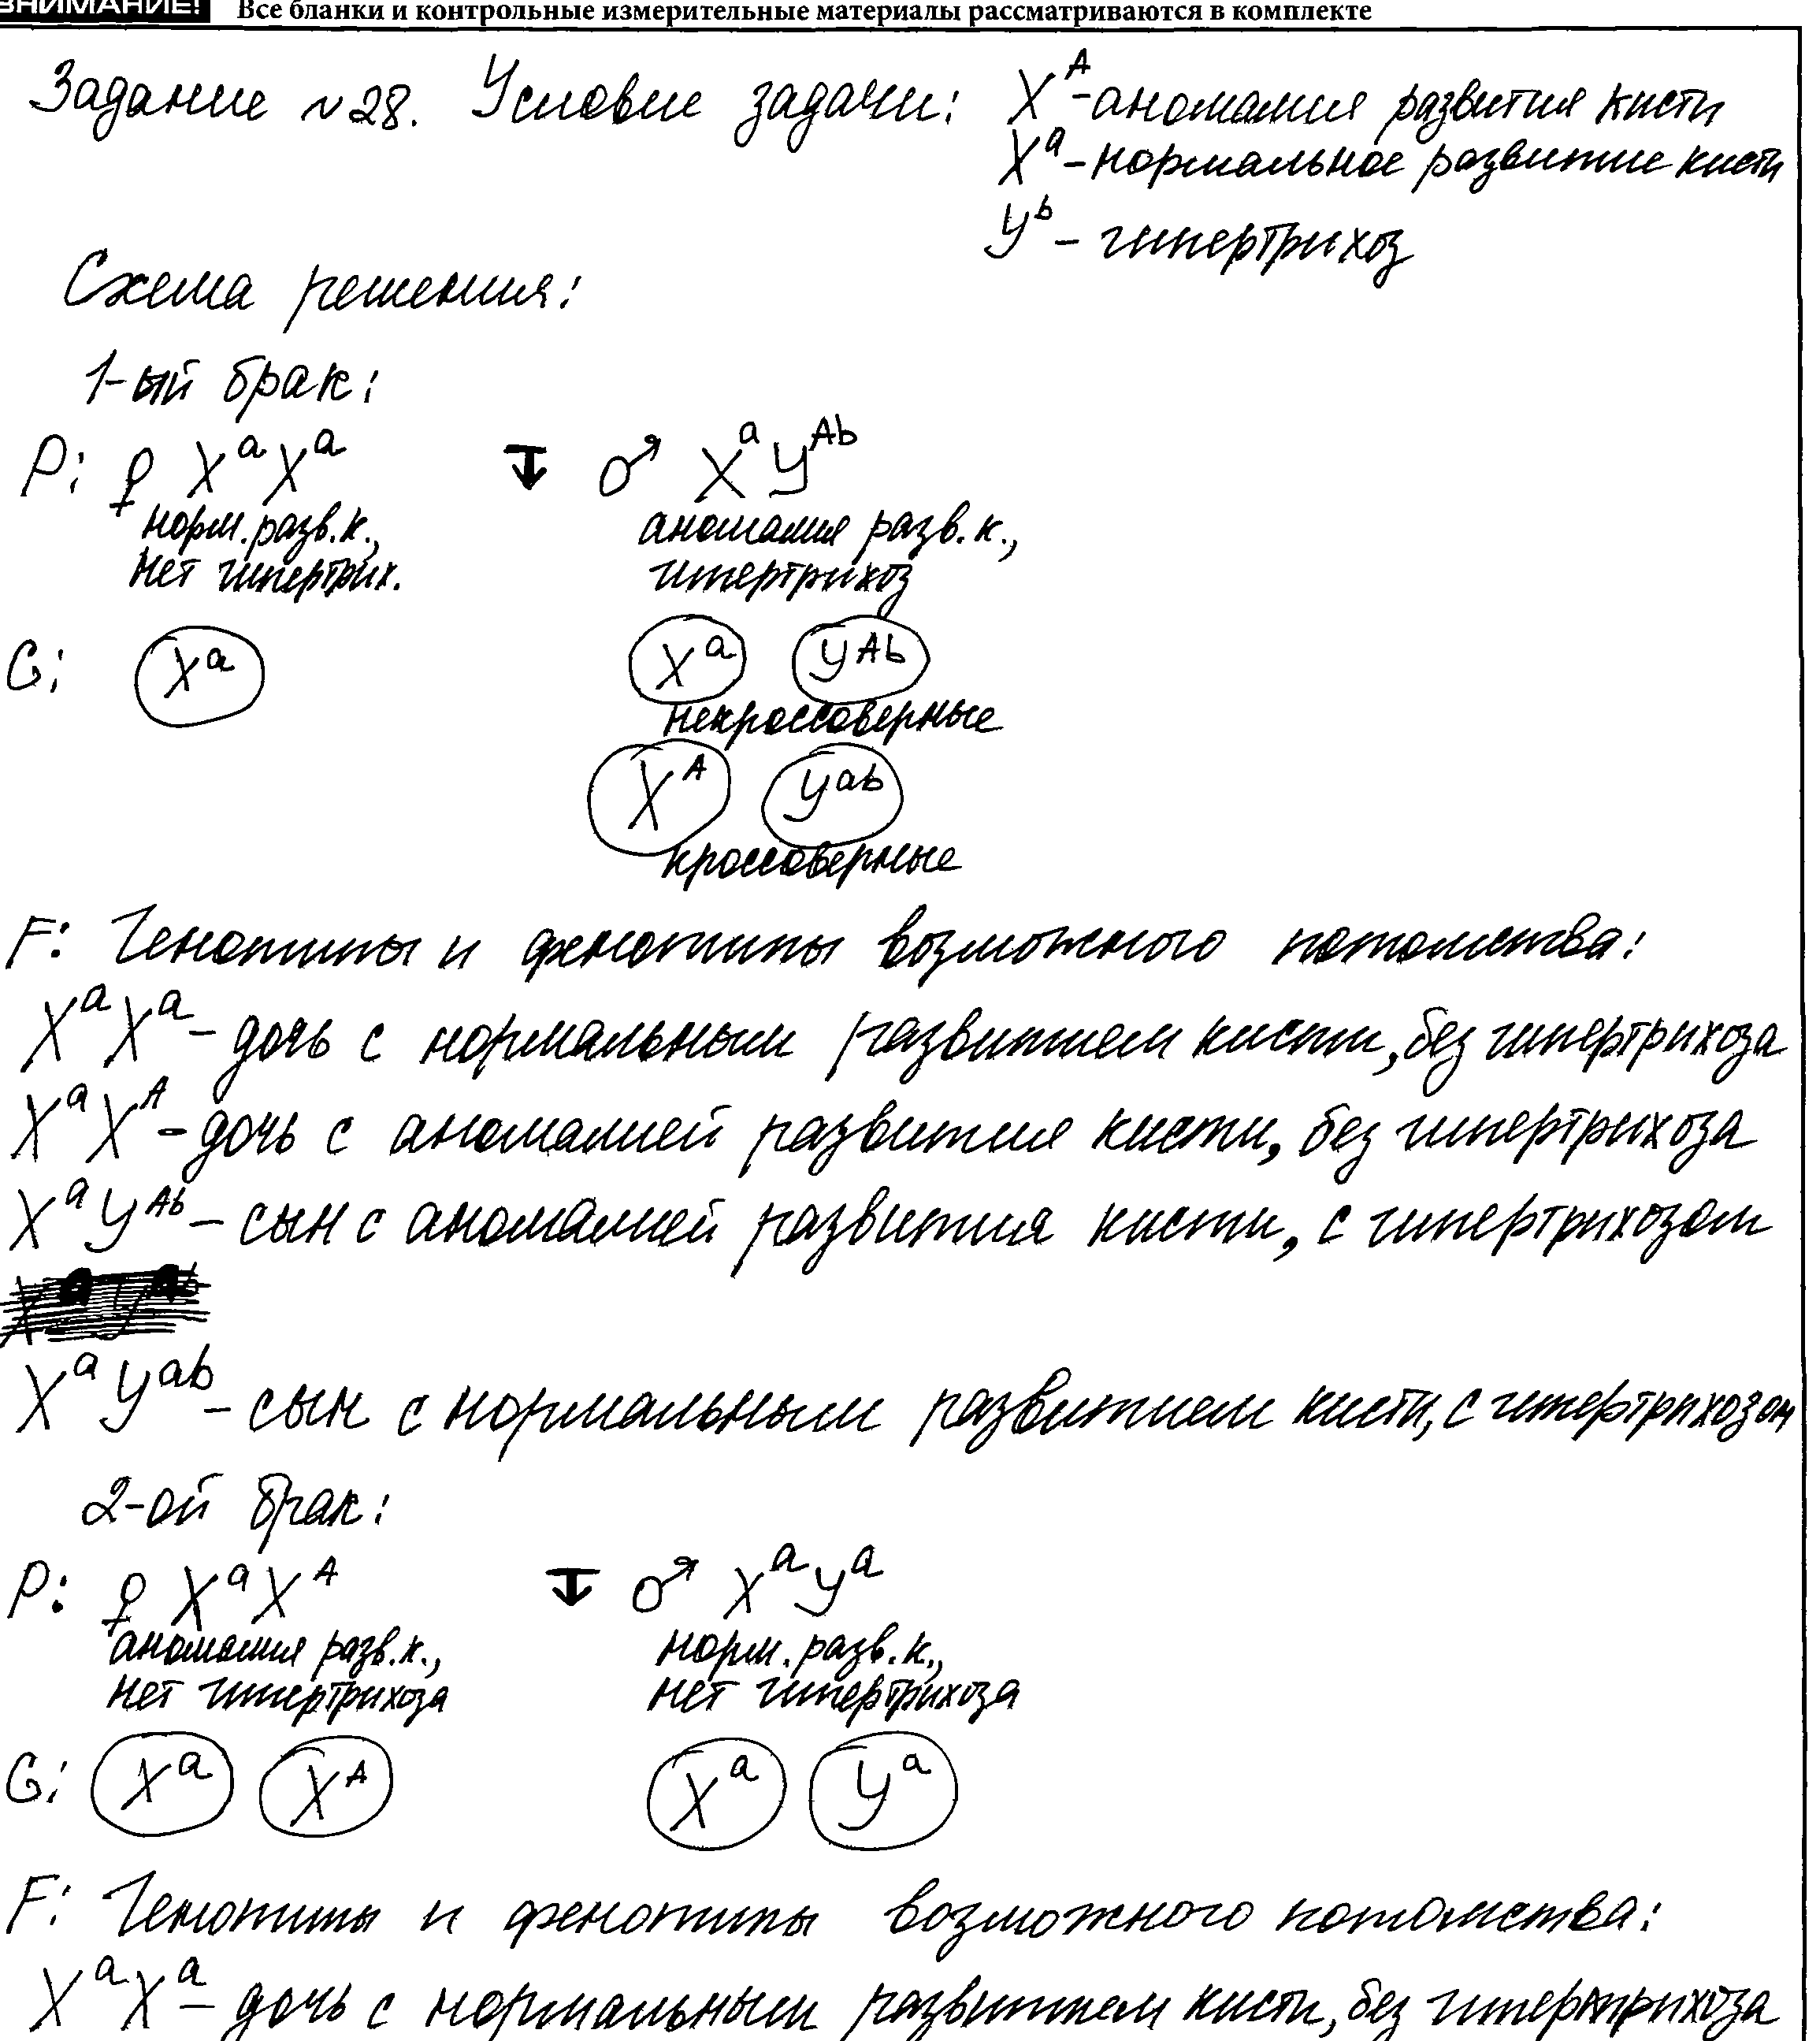 ВНИМАНИЕ! Все бланки и контрольные измерительные материалы рассматриваются в комплекте
Задание №28. Условие задачи: X^A - аномалия развития кисти
X^a - нормальное развитие кисти
Y^b - гипертрихоз
Схема решения:
1-ый брак:
P: ♀ X^a X^a ↧ ♂ X^a Y^Ab
норм. разв. к., аномалия разв. к.,
нет гипертрих. гипертрихоз
G: X^a X^a Y^Ab
некроссоверные
X^A Y^ab
кроссоверные
F: Генотипы и фенотипы возможного потомства:
X^a X^a - дочь с нормальным развитием кисти, без гипертрихоза
X^a X^A - дочь с аномалией развития кисти, без гипертрихоза
X^a Y^Ab - сын с аномалией развития кисти, с гипертрихозом
X^a Y^ab - сын с нормальным развитием кисти, с гипертрихозом
2-ой брак:
P: ♀ X^a X^A ↧ ♂ X^a Y^a
аномалия разв. к., норм. разв. к.,
нет гипертрихоза нет гипертрихоза
G: X^a X^A X^a Y^a
F: Генотипы и фенотипы возможного потомства:
X^a X^a - дочь с нормальным развитием кисти, без гипертрихоза